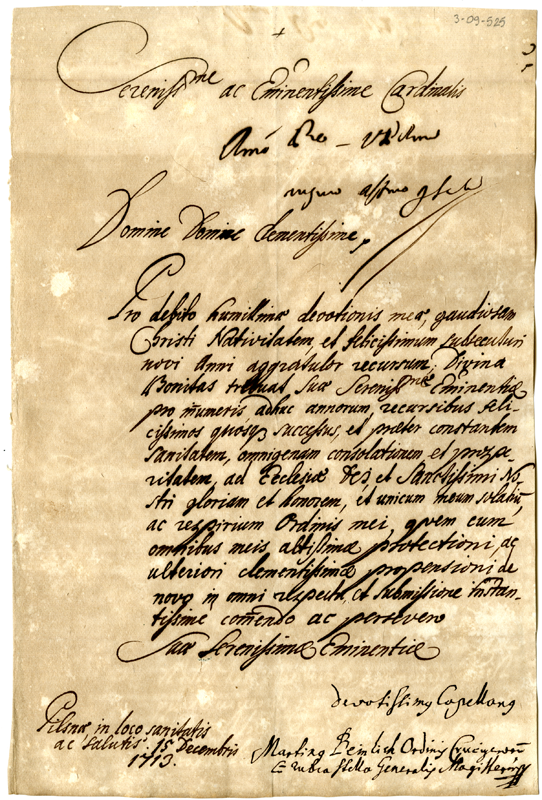 3-09-525
+
Sereniss̄me ac Eminentissime Cardinalis
Domine Domine Clementissime,
Pro debito humillimæ devotionis meæ, gaudiosam
Christi Nativitatem, et felicissimum subsecuturi
novi Anni aggratulor recursum; Divina
Bonitas tribuat Suæ Sereniss̄mæ Eminentiæ
pro innumeris adhuc annorum, recursibus feli-
cissimos quosq successus, et præter constantem
sanitatem, omnigenam consolationem et prospe
ritatem, ad Ecclesiæ Dei, et Sanctissimi No-
stri gloriam et honorem, et unicum meum solatiū,
ac respirium Ordinis mei, quem cum
omnibus meis altissimæ protectioni, ac
ulteriori clementissimæ propensioni de
novo in omni respectu, et submissione instan-
tissime com̄endo ac persevero
Suæ Serenissimæ Eminentiæ
Devotissimq Capellanq
Pilsnæ in loco sanitatis
ac salutis. 15 Decembris
1713.
Martinq Beinlich Ordinis Crucigerorū
C rubra stella Generalis Magister